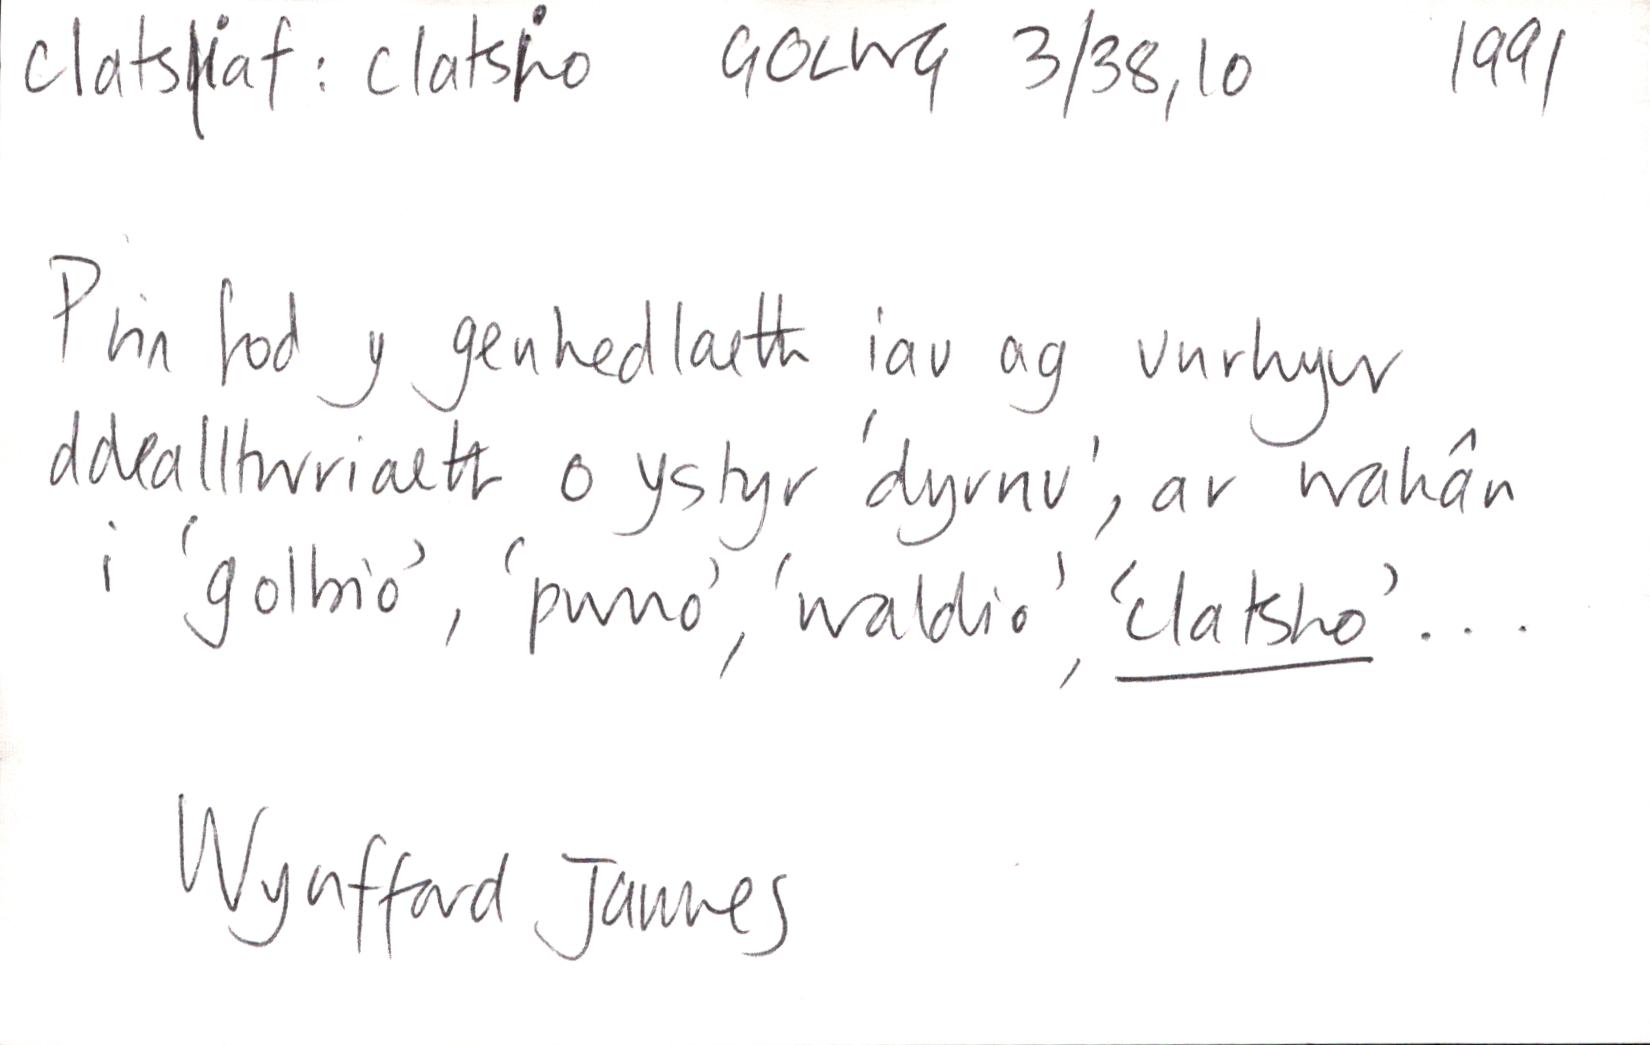 clatsiaf: clatsio GOLWG 3/38,10 1991
Prin fod y genhedlaeth iau ag unrhyw
ddealltwriaeth o ystyr 'dyrnu', ar wahân
i 'golbio', 'pwno', 'waldio', 'clatsho'....
Wynfford James